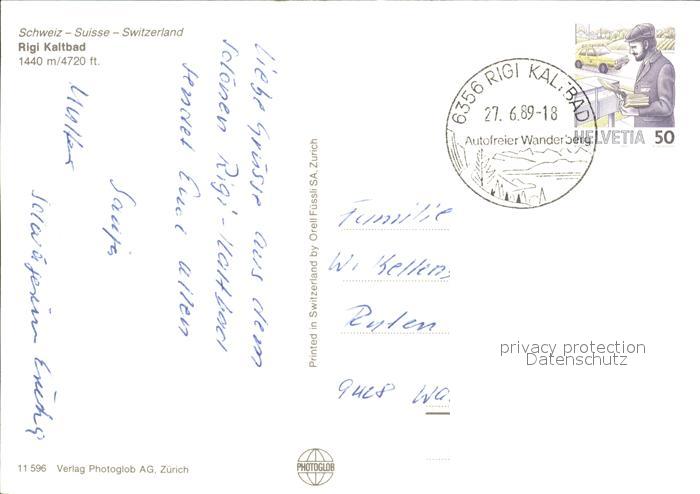 Schweiz – Suisse – Switzerland
Rigi Kaltbad
1440 m/4720 ft.
6356 RIGI KALTBAD
27. 6.89-18
Autofreier Wanderberg
HELVETIA 50
Liebe Grüsse aus dem
schönen Rigi-Kaltbad
sendet Euch allen
Mutter
Schwägerin
Printed in Switzerland by Orell Füssli SA, Zürich
Familie
W. Kellen
Ruten
9428 Wa
privacy protection
Datenschutz
11 596 Verlag Photoglob AG, Zürich
PHOTOGLOB